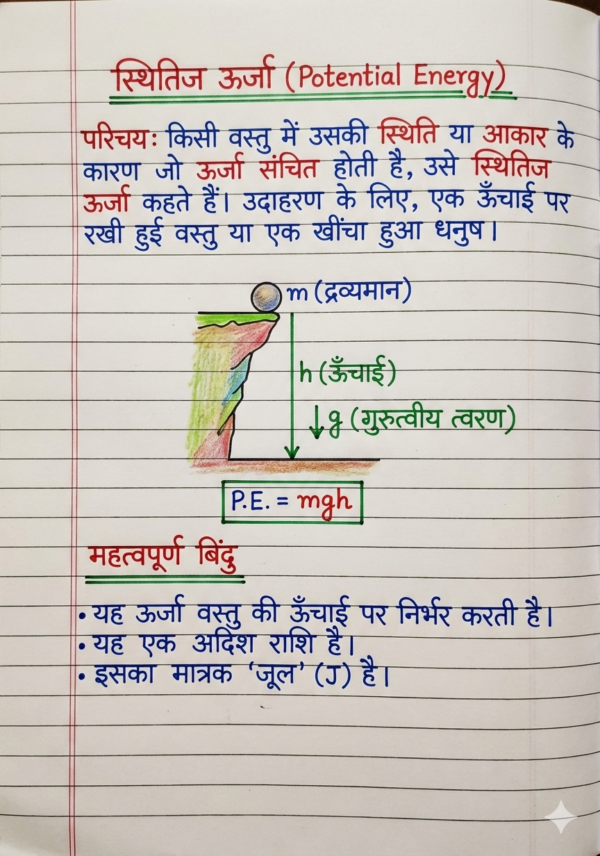 स्थितिज ऊर्जा (Potential Energy)
परिचय: किसी वस्तु में उसकी स्थिति या आकार के
कारण जो ऊर्जा संचित होती है, उसे स्थितिज
ऊर्जा कहते हैं। उदाहरण के लिए, एक ऊँचाई पर
रखी हुई वस्तु या एक खींचा हुआ धनुष।
m (द्रव्यमान)
h (ऊँचाई)
g (गुरुत्वीय त्वरण)
P.E. = mgh
महत्वपूर्ण बिंदु
• यह ऊर्जा वस्तु की ऊँचाई पर निर्भर करती है।
• यह एक अदिश राशि है।
• इसका मात्रक ‘जूल’ (J) है।